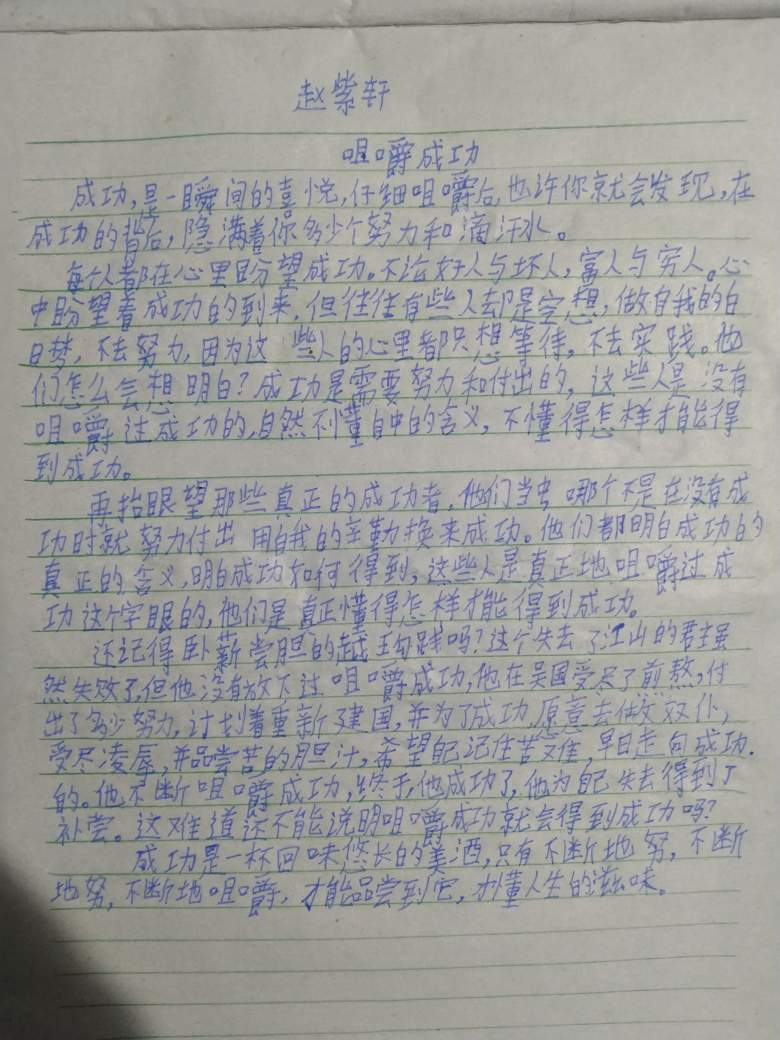 赵紫轩
咀嚼成功
成功,是一瞬间的喜悦,仔细咀嚼后,也许你就会发现,在
成功的背后,隐满着你多少个努力和滴汗水。
每个人都在心里盼望成功。不论好人与坏人,富人与穷人。心
中盼望着成功的到来,但往往有些人却是空想,做自我的白
日梦,不去努力,因为这些人的心里都只想等待,不去实践。他
们怎么会想明白?成功是需要努力和付出的,这些人是没有
咀嚼过成功的,自然不懂自中的含义,不懂得怎样才能得
到成功。
再抬眼望那些真正的成功者,他们当中哪个不是在没有成
功时就努力付出用自我的辛勤换来成功。他们都明白成功的
真正的含义,明白成功如何得到,这些人是真正地咀嚼过成
功这个字眼的,他们是真正懂得怎样才能得到成功。
还记得卧薪尝胆的越王勾践吗?这个失去了江山的君主虽
然失败了,但他没有放下过咀嚼成功,他在吴国受尽了煎熬,付
出了多少努力,计划着重新建国,并为了成功,愿意去做奴仆,
受尽凌辱,并品尝苦的胆汁,希望自己记住苦难,早日走向成功.
的。他不断咀嚼成功,终于,他成功了,他为自己失去得到了
补尝。这难道还不能说明咀嚼成功就会得到成功吗?
成功是一杯回味悠长的美酒,只有不断地努,不断
地努,不断地咀嚼,才能品尝到它,才懂人生的滋味。